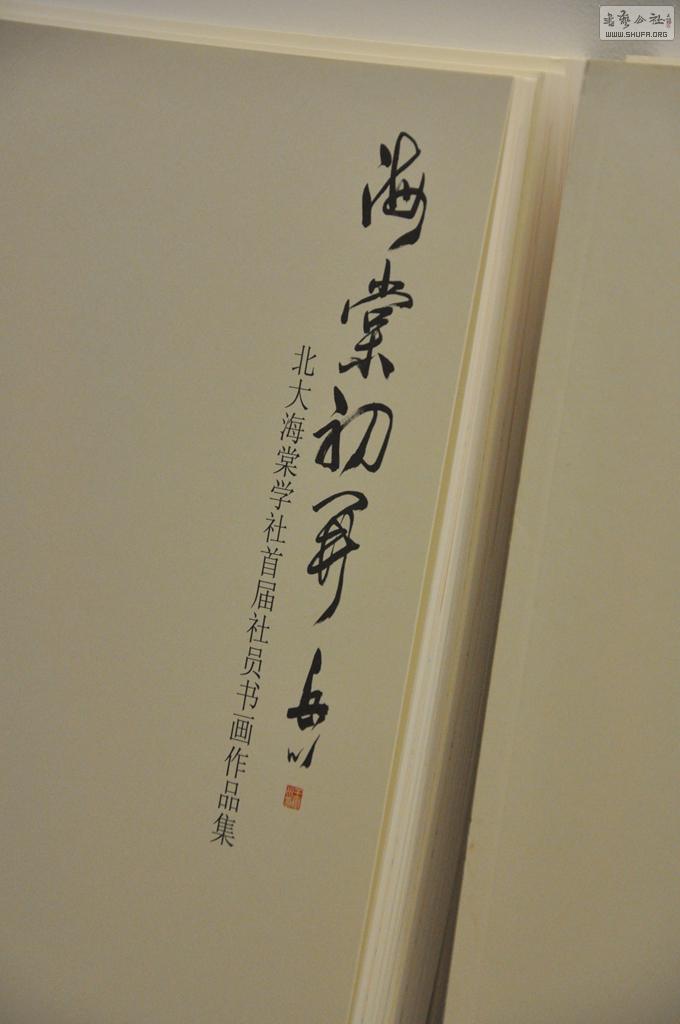 海棠初开
北大海棠学社首届社员书画作品集
书艺公社
WWW.SHUFA.ORG